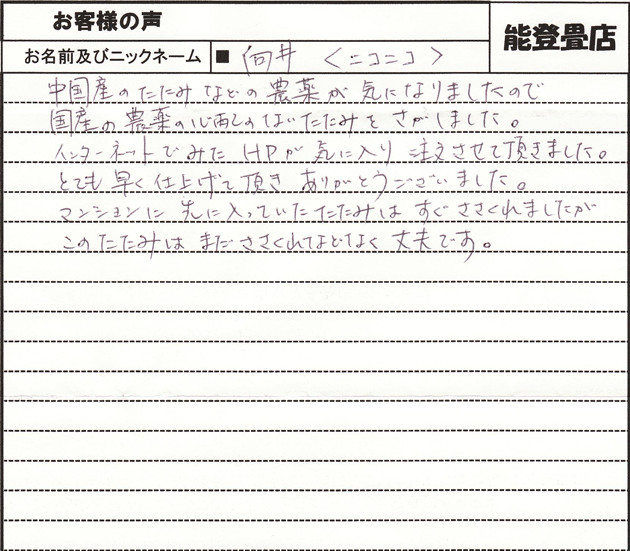 お客様の声
能登畳店
お名前及びニックネーム ■ 向井 〈ニコニコ〉
中国産のたたみなどの農薬が気になりましたので
国産の農薬の心配のないたたみをさがしました。
インターネットでみたHPが気に入り注文させて頂きました。
とても早く仕上げて頂きありがとうございました。
マンションに先に入っていたたたみはすぐささくれましたが
このたたみはまだささくれてなどなく丈夫です。